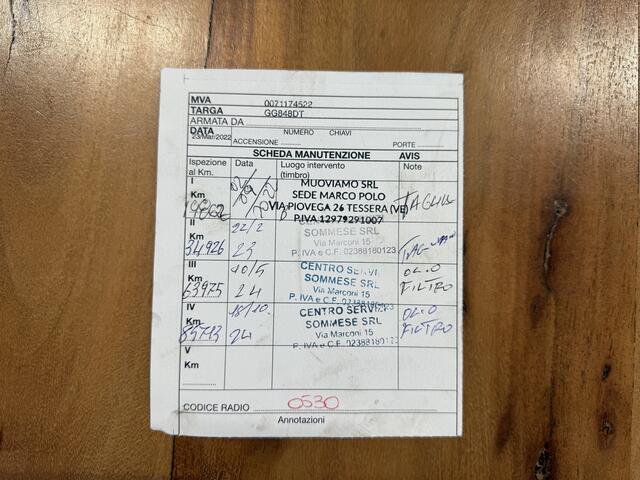 MVA 0071174522
TARGA GG848DT
ARMATA DA
DATA 23/Mar/2022 ACCENSIONE NUMERO CHIAVI PORTE
SCHEDA MANUTENZIONE AVIS
Ispezione al Km. Data Luogo intervento (timbro) Note
I
Km
MUOVIAMO SRL
SEDE MARCO POLO
VIA PIOVEGA 26 TESSERA (VE)
P.IVA 12979291007
II
Km 34926
22/2
23
SOMMESE SRL
Via Marconi 15
P. IVA e C.F. 02388180123
III
Km 63975
10/5
24
CENTRO SERVIZI
SOMMESE SRL
Via Marconi 15
P. IVA e C.F. 02388180123
OLIO
FILTRO
IV
Km
18/10.
24
CENTRO SERVIZI
SOMMESE SRL
Via Marconi 15
P. IVA e C.F. 02388180123
OLIO
FILTRO
V
Km
CODICE RADIO 0530
Annotazioni